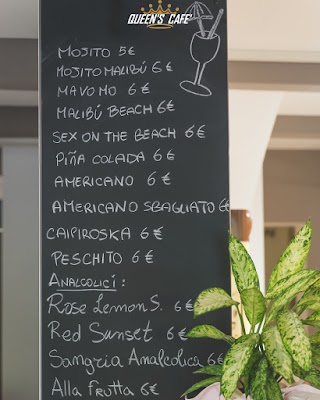 QUEEN'S CAFE'
MOJITO 5€
MOJITO MALIBÚ 6€
MAVOMO 6€
MALIBÚ BEACH 6€
SEX ON THE BEACH 6€
PIÑA COLADA 6€
AMERICANO 6€
AMERICANO SBAGLIATO 6€
CAIPIROSKA 6€
PESCHITO 6€
ANALCOLICI:
Rose Lemon S. 6€
Red Sunset 6€
Sangria Analcolica 6€
Alla frutta 6€